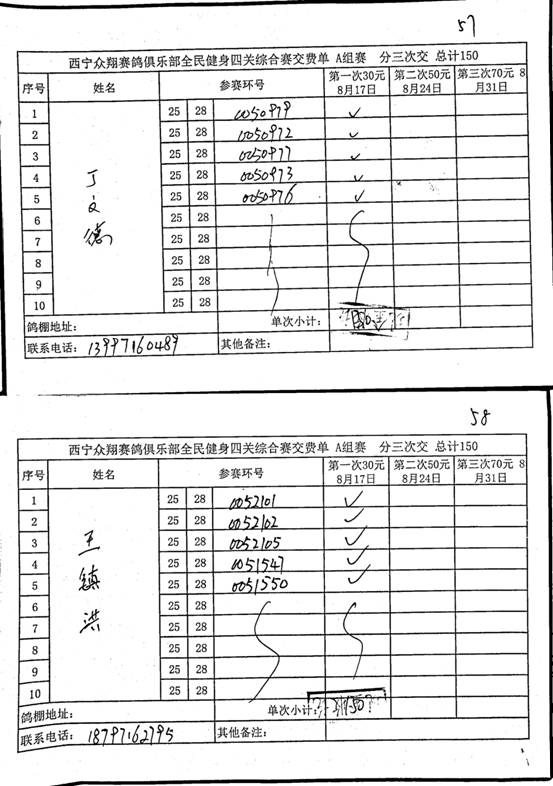 57
西宁众翔赛鸽俱乐部全民健身四关综合赛交费单 A组赛 分三次交 总计150
序号 姓名 参赛环号 第一次30元 8月17日 第二次50元 8月24日 第三次70元 8月31日
丁文德
1 25 28 0050979 ✓
2 25 28 0050972 ✓
3 25 28 0050977 ✓
4 25 28 0050973 ✓
5 25 28 0050976 ✓
6 25 28
7 25 28
8 25 28
9 25 28
10 25 28
鸽棚地址： 单次小计：
联系电话：13997160489 其他备注：
58
西宁众翔赛鸽俱乐部全民健身四关综合赛交费单 A组赛 分三次交 总计150
序号 姓名 参赛环号 第一次30元 8月17日 第二次50元 8月24日 第三次70元 8月31日
王镇洪
1 25 28 0052101 ✓
2 25 28 0052102 ✓
3 25 28 0052105 ✓
4 25 28 0051547 ✓
5 25 28 0051550 ✓
6 25 28
7 25 28
8 25 28
9 25 28
10 25 28
鸽棚地址： 单次小计：
联系电话：18797162795 其他备注：